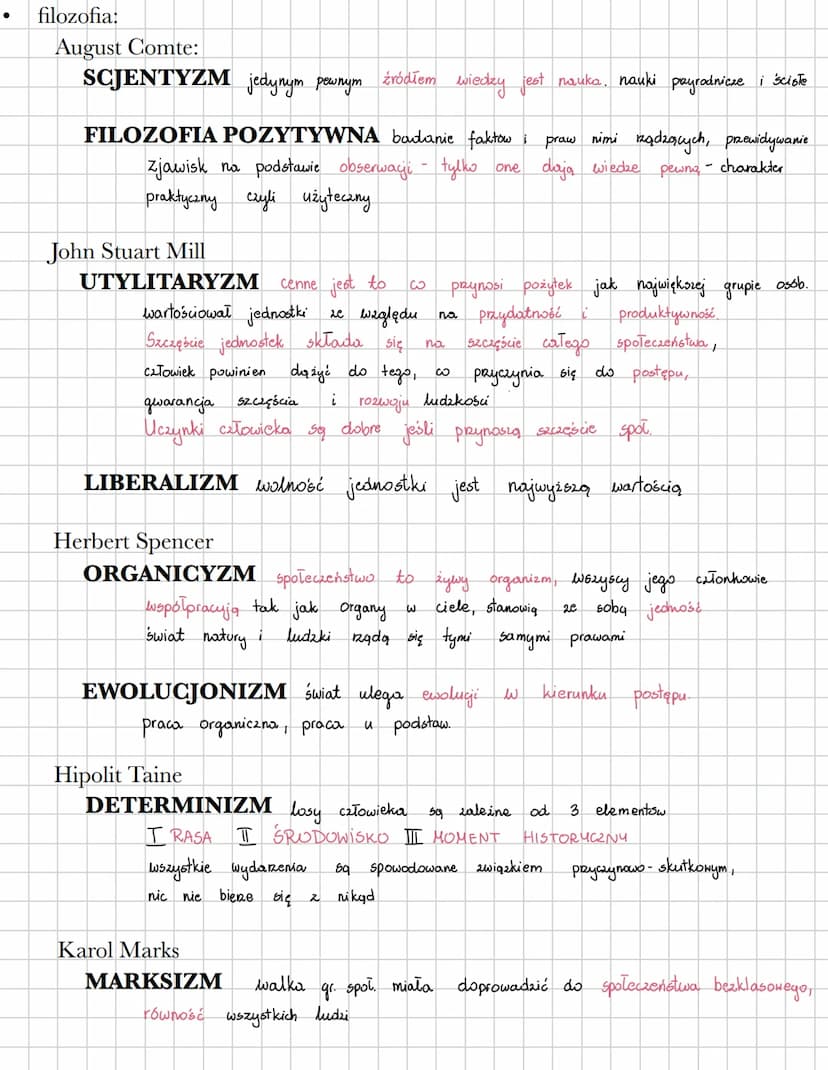 • filozofia:
August Comte:
SCJENTYZM jedynym pewnym źródłem wiedzy jest nauka. nauki przyrodnicze i ścisłe
FILOZOFIA POZYTYWNA badanie faktów i praw nimi rządzących, przewidywanie
zjawisk na podstawie obserwacji - tylko one dają wiedze pewną - charakter
praktyczny czyli użyteczny
John Stuart Mill
UTYLITARYZM cenne jest to co przynosi pożytek jak największej grupie osób.
wartościował jednostki ze względu na przydatność i produktywność.
Szczęście jednostek składa się na szczęście całego społeczeństwa,
człowiek powinien dążyć do tego, co przyczynia się do postępu,
gwarancja szczęścia i rozwoju ludzkości
Uczynki człowieka są dobre jeśli przynoszą szczęście społ.
LIBERALIZM wolność jednostki jest najwyższą wartością
Herbert Spencer
ORGANICYZM społeczeństwo to żywy organizm, wszyscy jego członkowie
współpracują tak jak organy w ciele, stanowią ze sobą jedność
świat natury i ludzki rządą się tymi samymi prawami
EWOLUCJONIZM świat ulega ewolucji w kierunku postępu.
praca organiczna, praca u podstaw.
Hipolit Taine
DETERMINIZM losy człowieka są zależne od 3 elementów
I RASA II ŚRODOWISKO III MOMENT HISTORYCZNY
wszystkie wydarzenia są spowodowane związkiem przyczynowo-skutkowym,
nic nie bierze się z nikąd
Karol Marks
MARKSIZM walka gr. społ. miała doprowadzić do społeczeństwa bezklasowego,
równość wszystkich ludzi